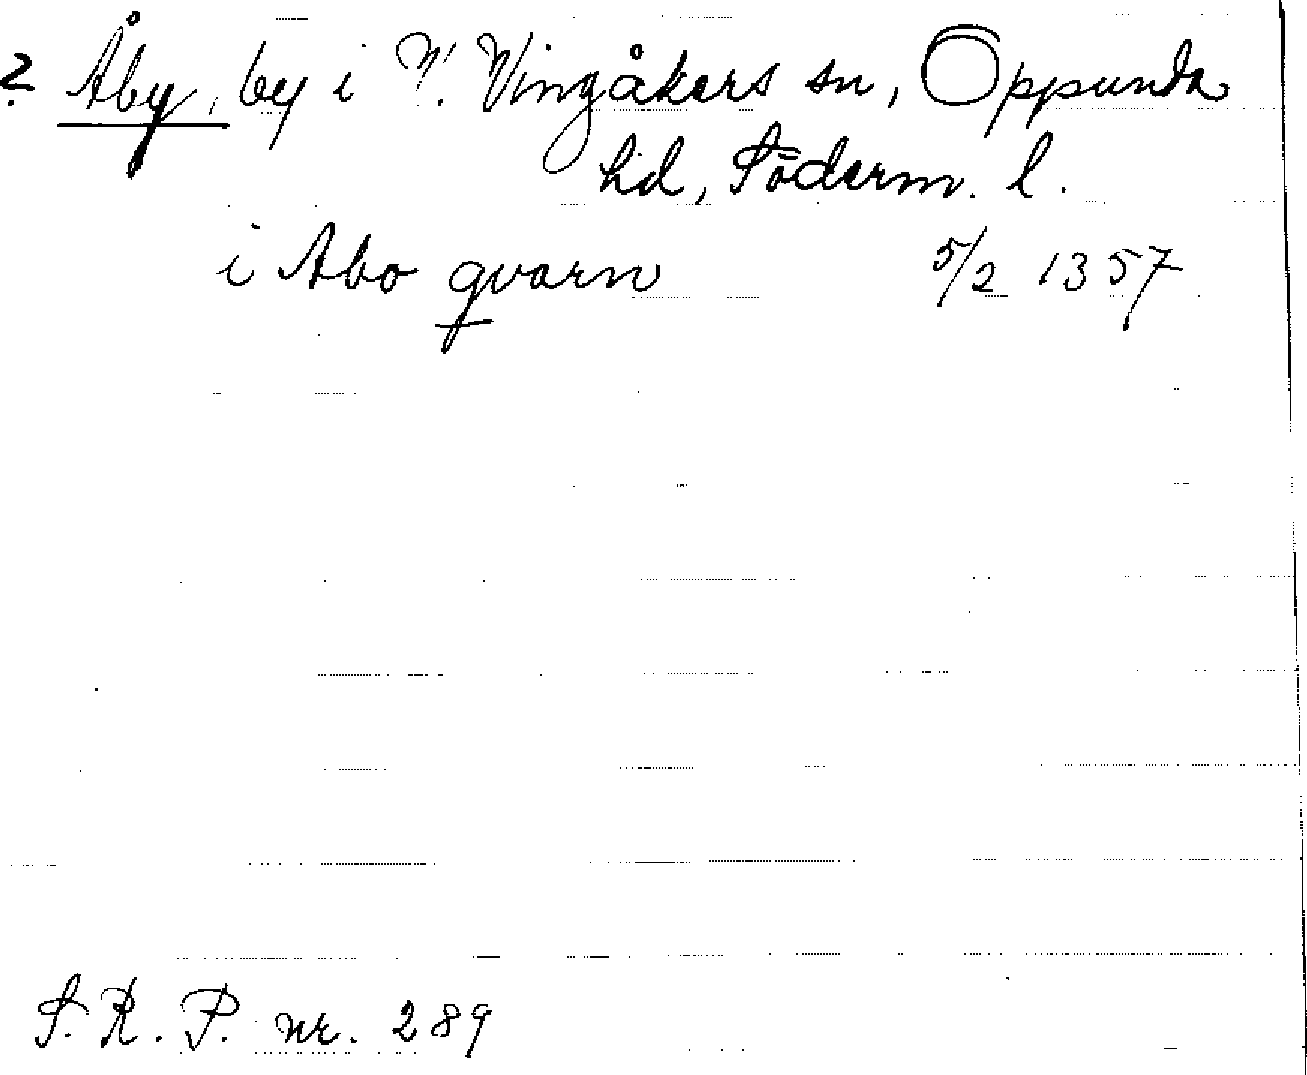 ? Åby, by i V. Vingåkers sn, Oppunda
hd, Söderm. l.
i Abo qvarn 5/2 1357
S. R. P. nr. 289